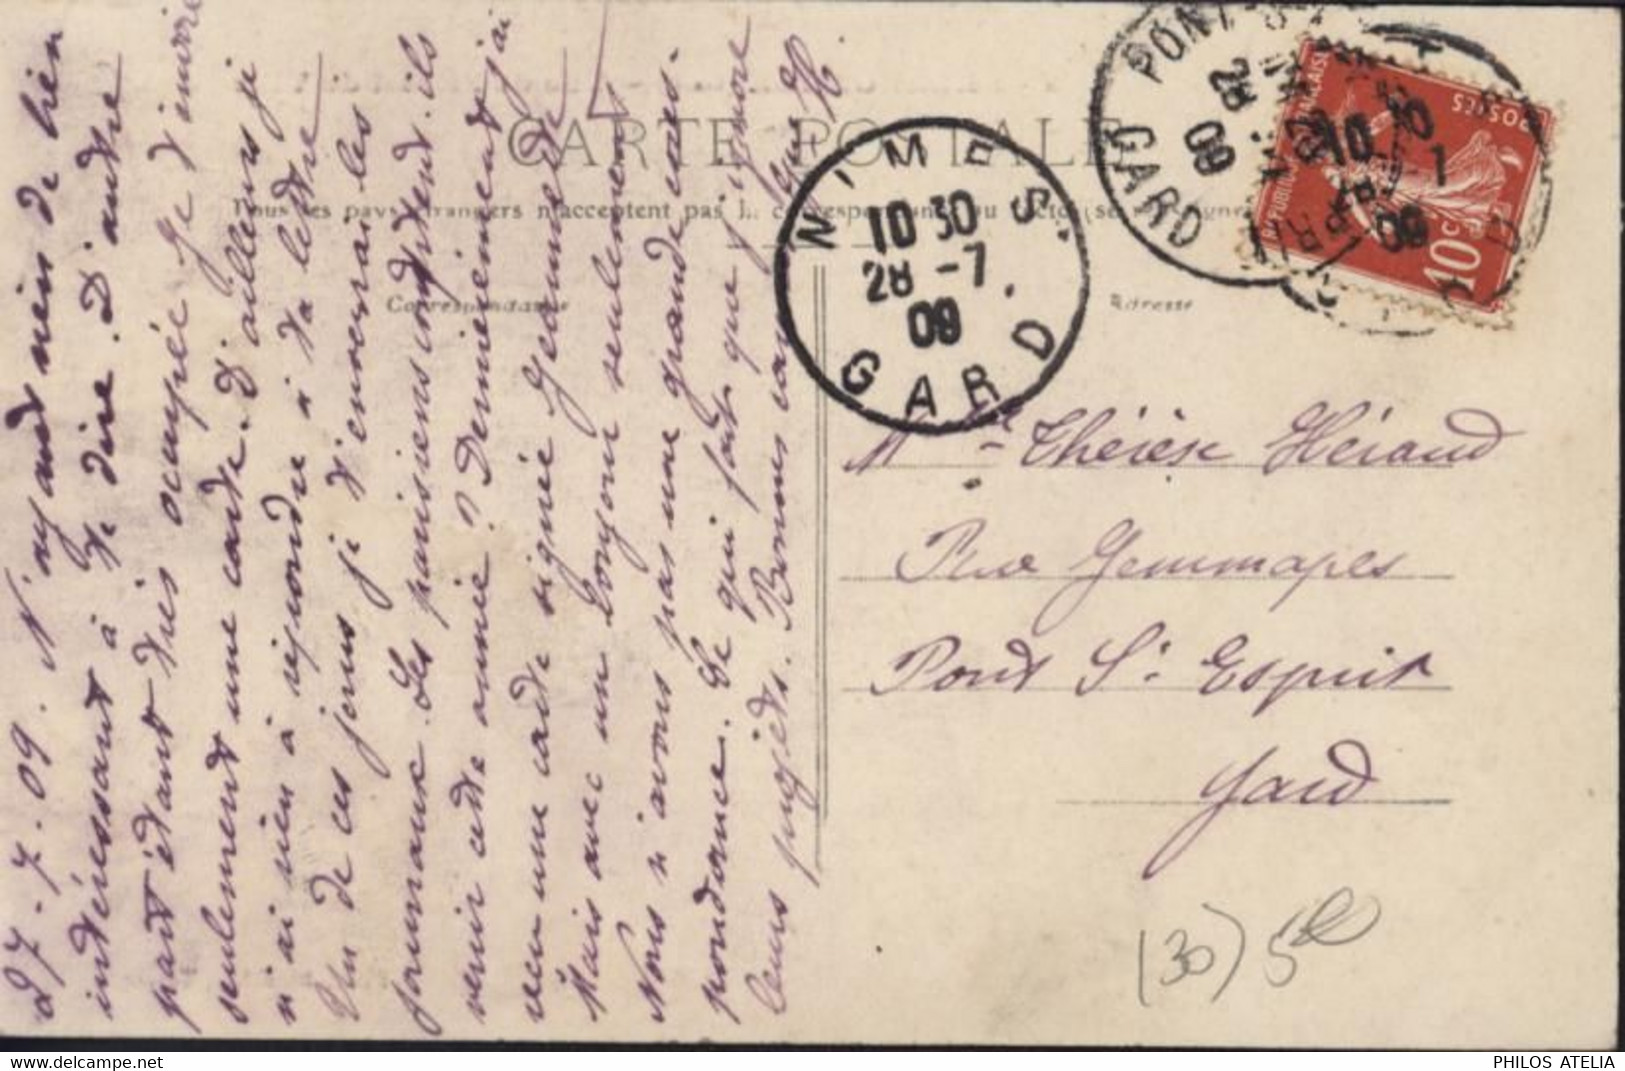 27.7.09. N'ayant rien de bien
intéressant à te dire. D'autre
part étant très occupée je t'envoie
seulement une carte. D'ailleurs je
n'ai rien à répondre à ta lettre
Un de ces jours je t'enverrai les
journaux. Les parisiens
venir cette année? Dernièrement j'ai
reçu une carte signée
Mais avec un bonjour seulement
Nous n'avons pas une grande corres-
pondance. Ce qui fait que j'ignore
leurs projets. Bonnes
CARTE POSTALE
Tous les pays étrangers n'acceptent pas la correspondance au recto (se
Correspondance
Adresse
NIMES
10 30
28 -7
09
GARD
PONT-ST
28
09
GARD
REPUBLIQUE FRANÇAISE
POSTES
10c
Mlle Thérèse Héraud
Rue Gemmapes
Pont St Esprit
Gard
(30)
PHILOS ATELIA
www.delcampe.net